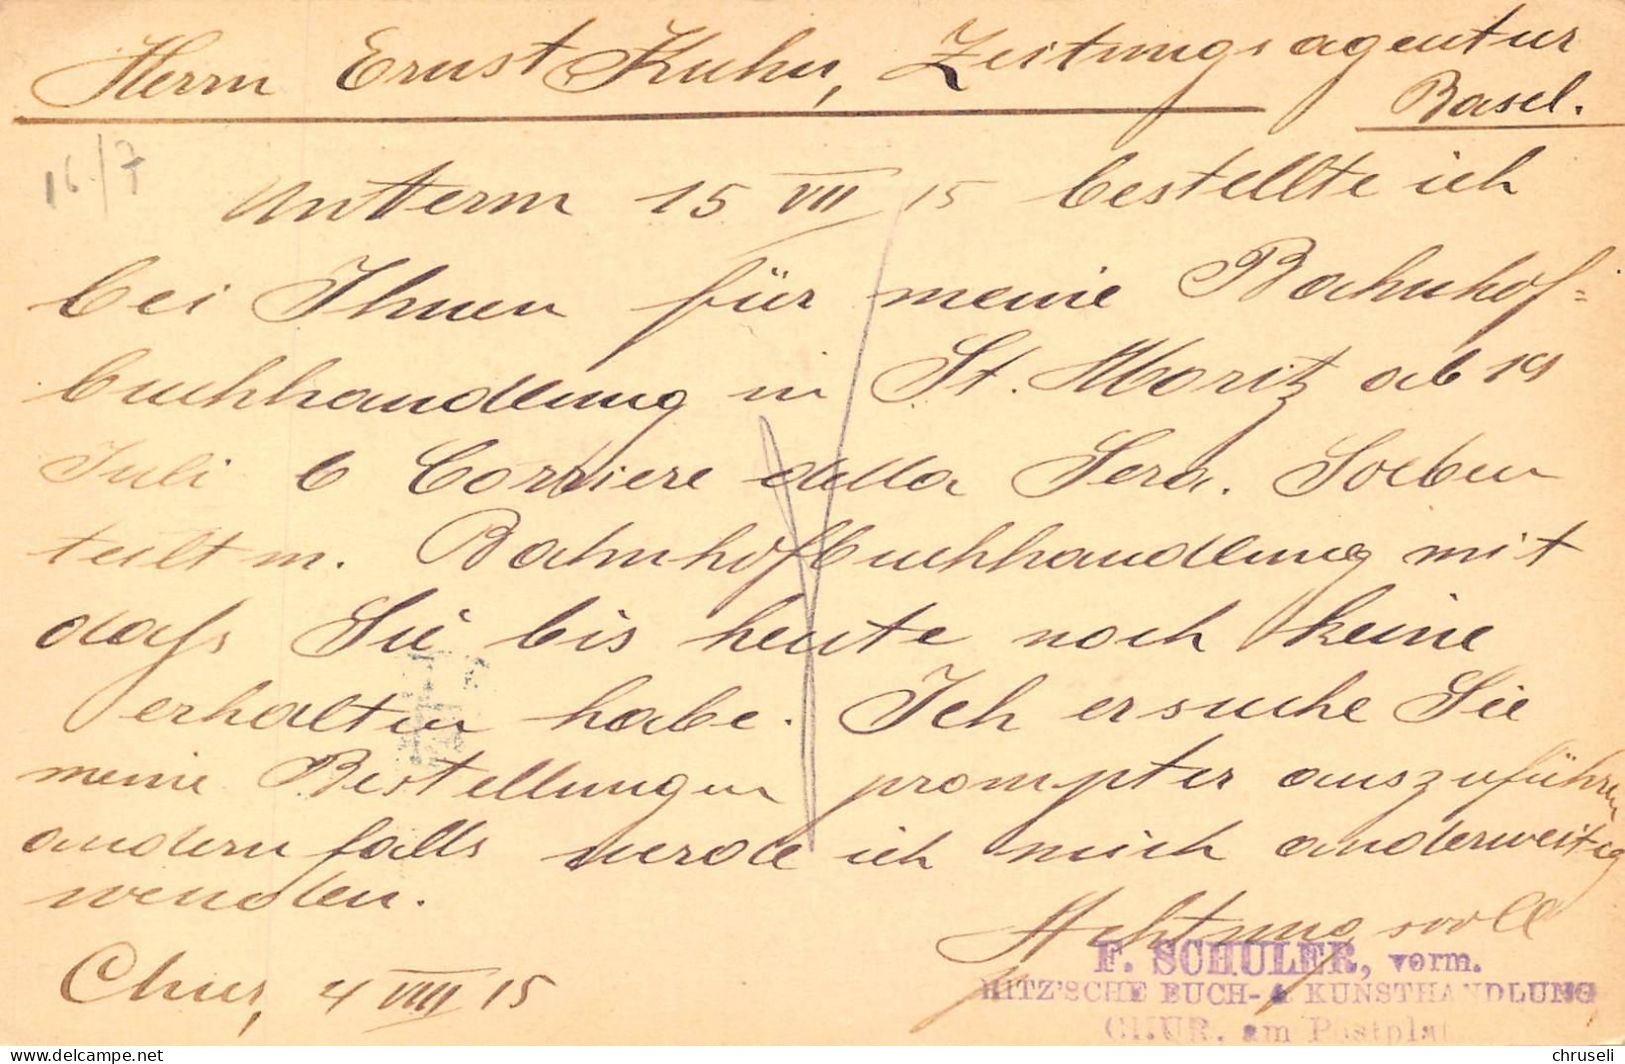 Herrn Ernst Kuhn, Zeitungsagentur
Basel.
16/7
Unterm 15 VII 15 bestellte ich
bei Ihnen für meine Bahnhof=
buchhandlung in St. Moritz ab 19
Juli 6 Corriere della Sera. Soeben
teilt m. Bahnhofbuchhandlung mit
dass Sie bis heute noch keine
erhalten habe. Ich ersuche Sie
meine Bestellungen prompter auszuführen
andernfalls werde ich mich anderweitig
wenden.
Achtungsvoll
Chur, 4 VIII 15
F. SCHULER, vorm.
HITZ'SCHE BUCH- & KUNSTHANDLUNG
CHUR. am Postplat
chruseli